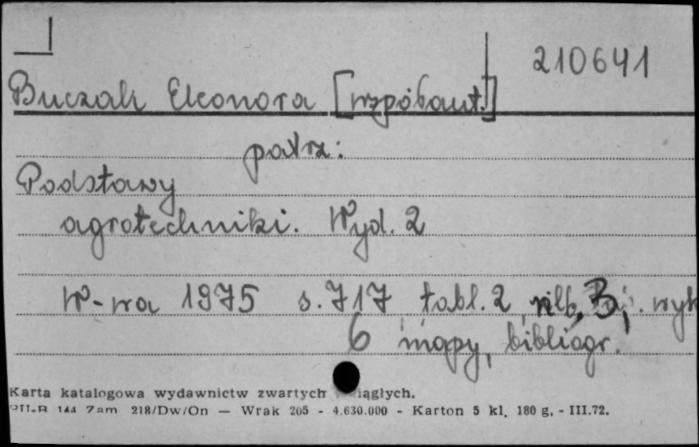 210641
Buczak Eleonora [współaut.]
patrz:
Podstawy
agrotechniki. Wyd. 2
W-wa 1975 s. 717 tabl. 2 nlb, 3,
6 mapy, bibliogr.
Karta katalogowa wydawnictw zwartych
218/Dw/On — Wrak 205 - 4.630.000 - Karton 5 kl. 180 g, - III.72.